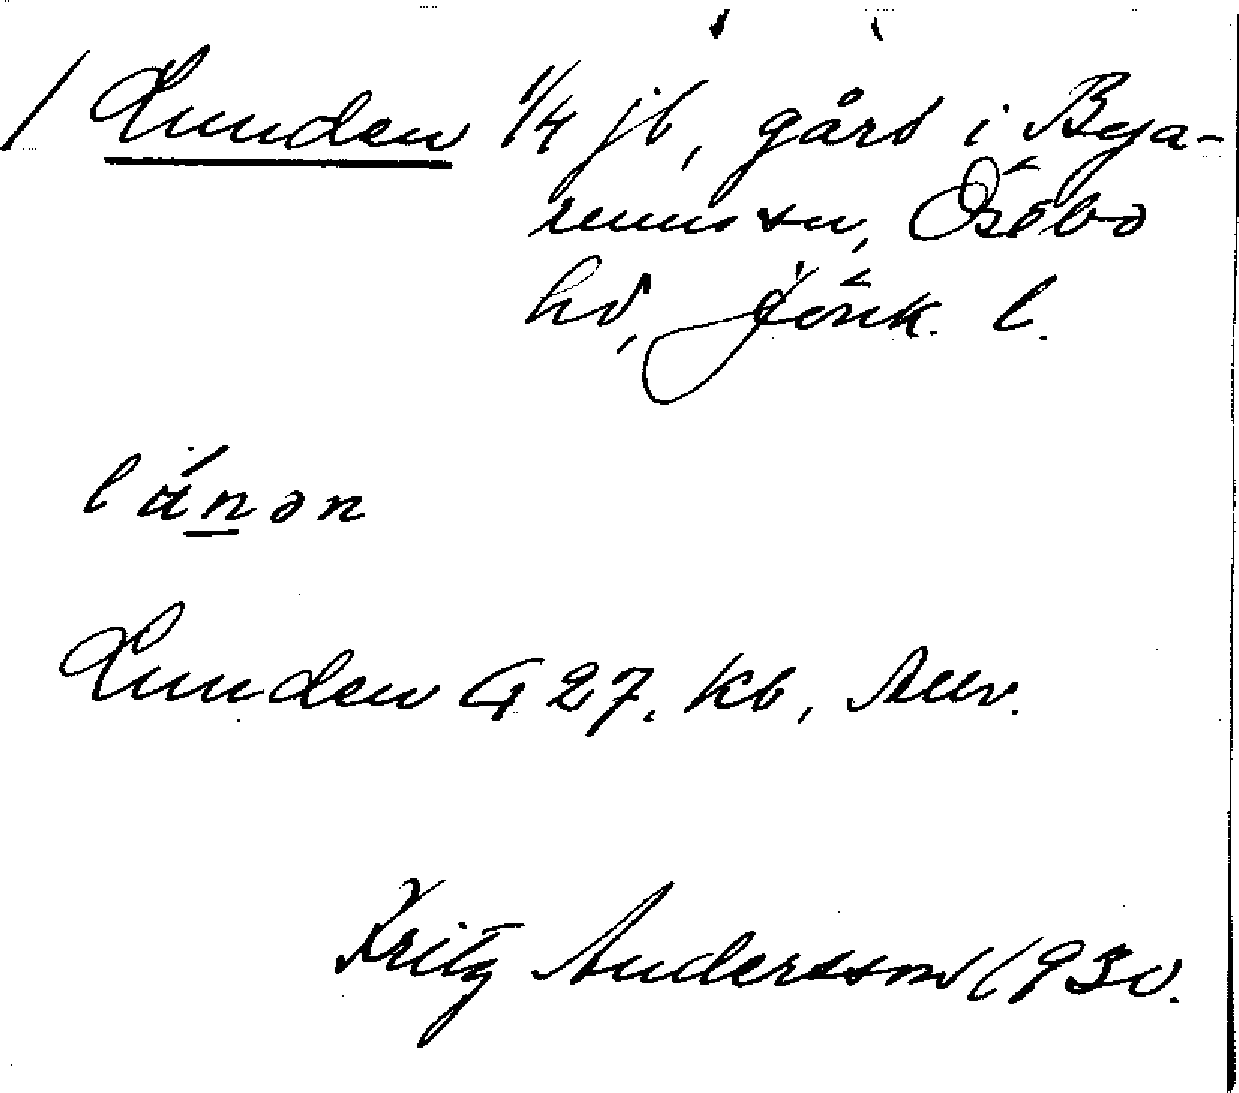 / Lunden 1/4 jb, gård i Bya-
rums sn, Östbo
hd, Jönk. l.
lánən
Lunden G 27. Kb,
Fritz Andersson 1930.